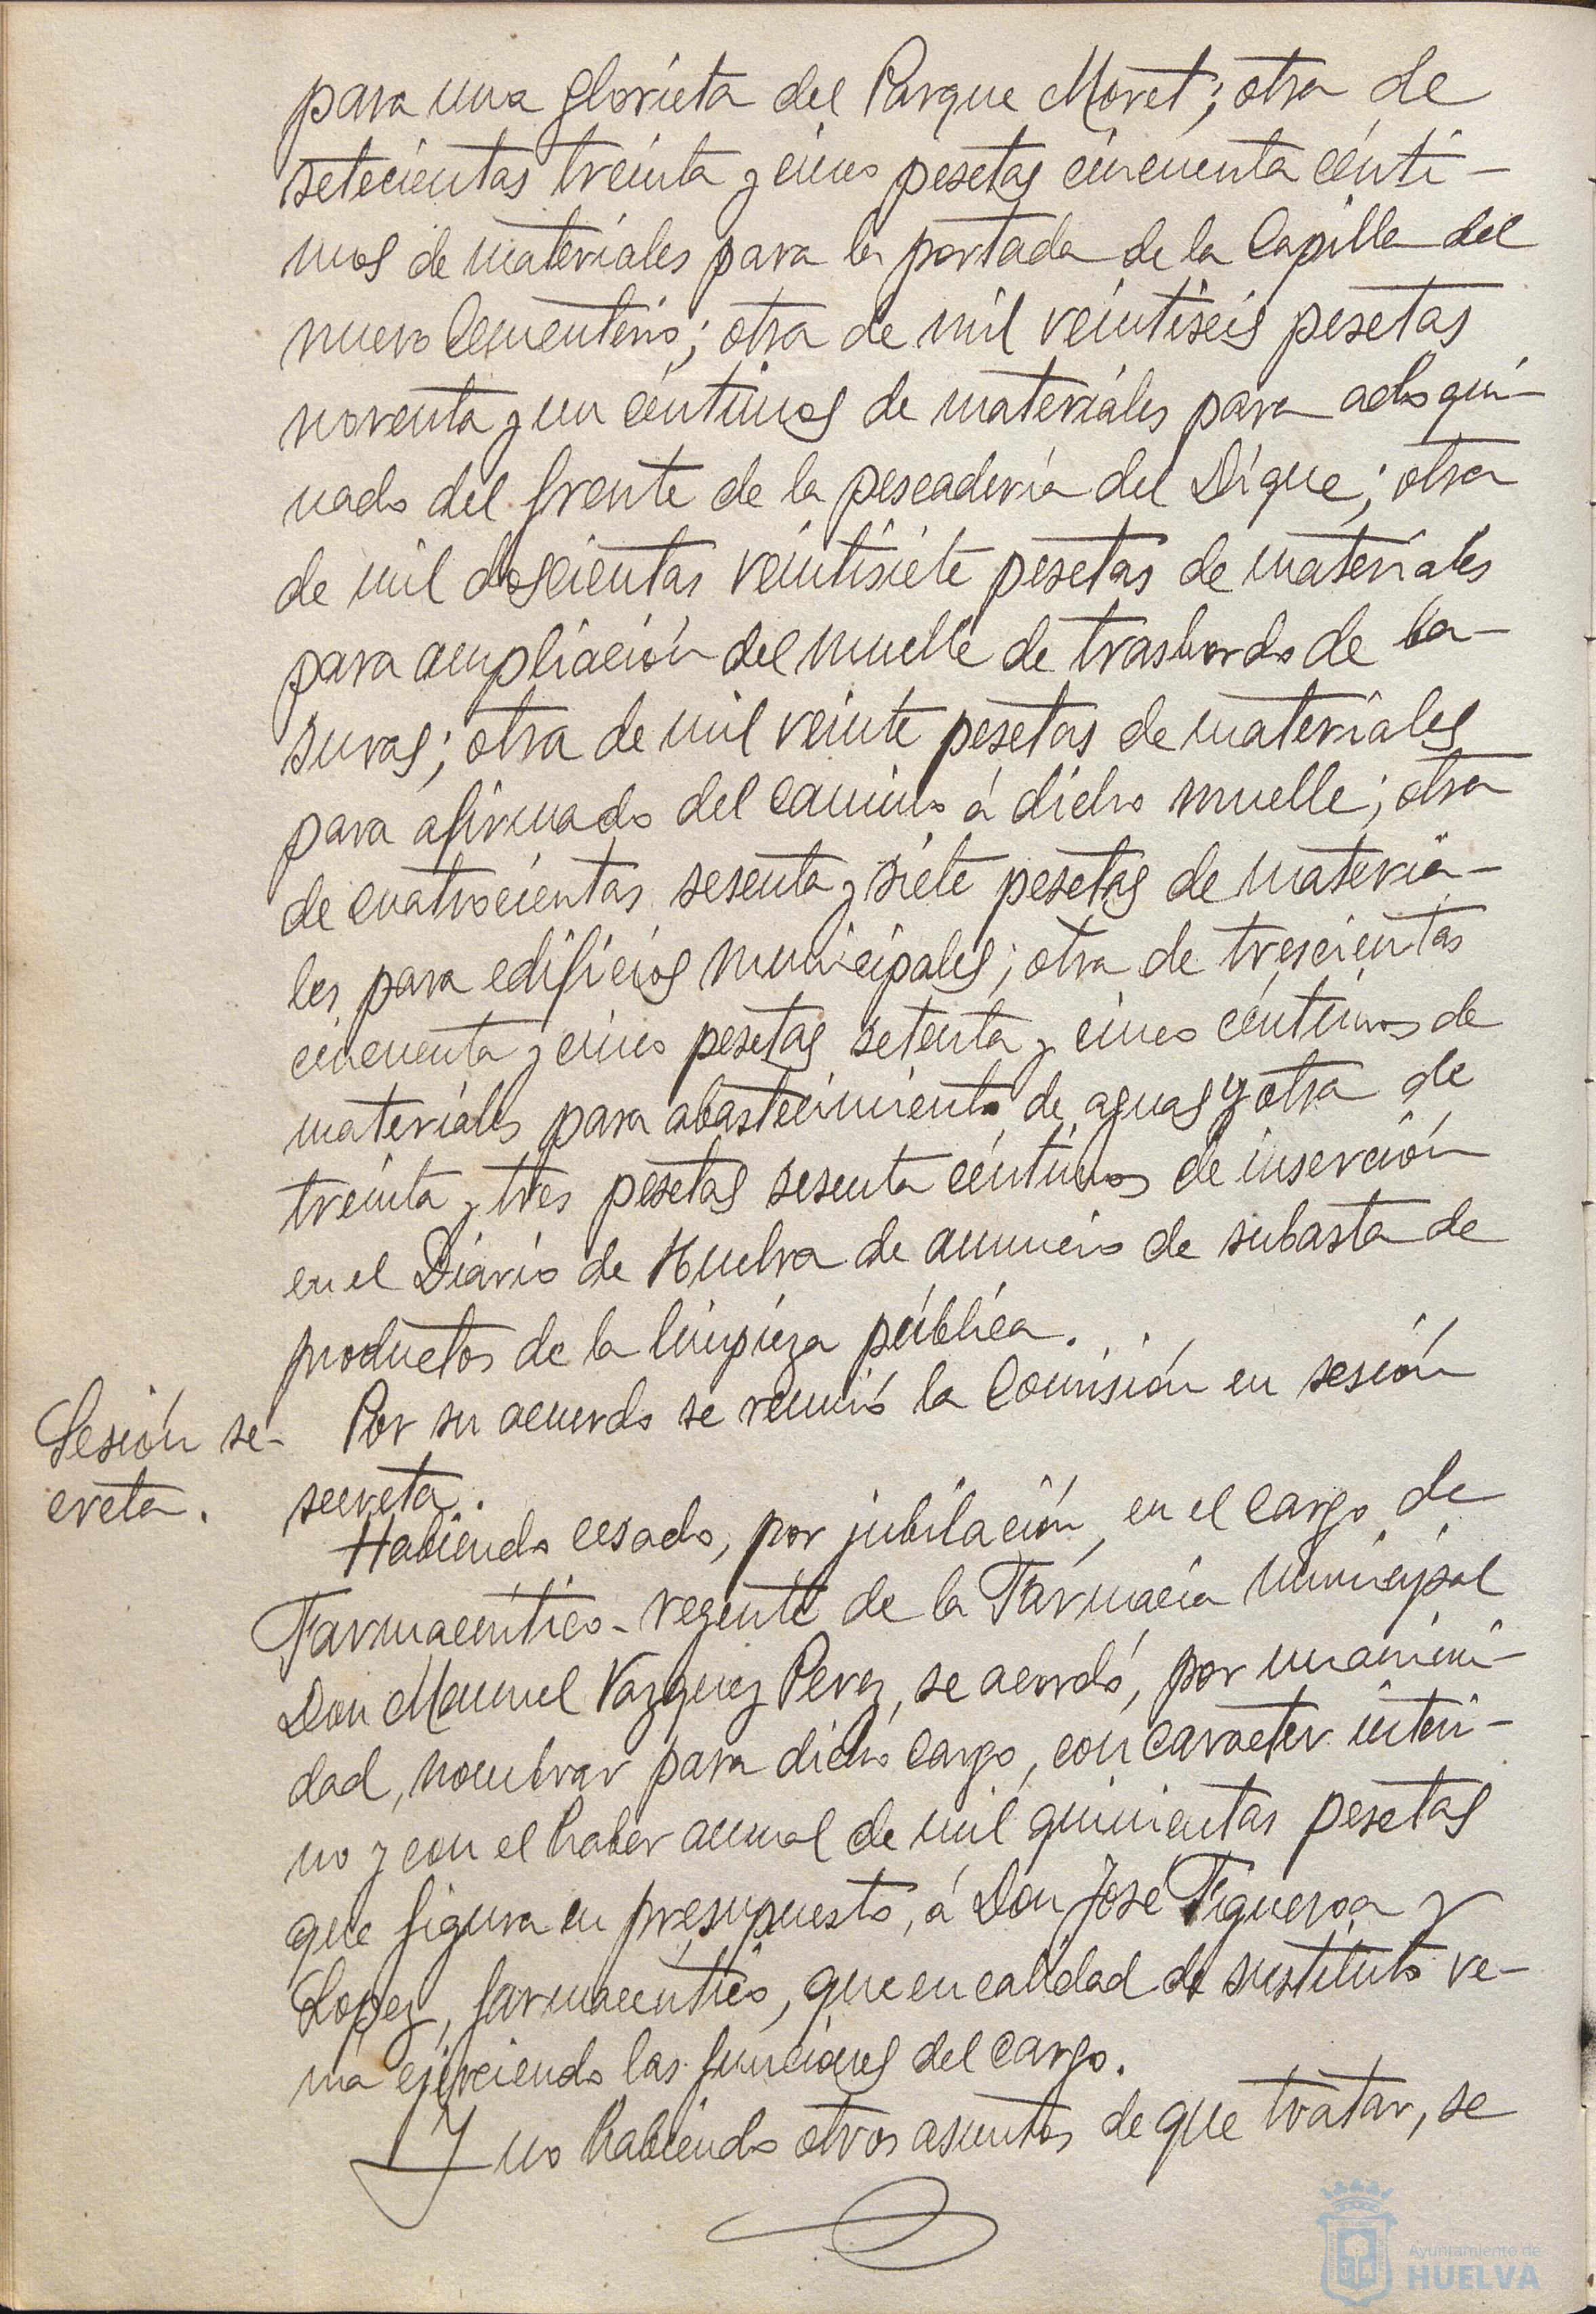 para una glorieta del Parque Moret; otra de
setecientas treinta y cinco pesetas cincuenta cénti-
mos de materiales para la portada de la Capilla del
nuevo Cementerio; otra de mil veintiseis pesetas
noventa y un céntimos de materiales para adoqui-
nado del frente de la pescadería del Dique; otra
de mil doscientas veintisiete pesetas de materiales
para ampliación del muelle de trasbordo de ba-
suras; otra de mil veinte pesetas de materiales
para afirmado del camino á dicho muelle; otra
de cuatrocientas sesenta y siete pesetas de materia-
les para edificios municipales; otra de trescientas
cincuenta y cinco pesetas setenta y cinco céntimos de
materiales para abastecimiento de aguas y otra de
treinta y tres pesetas sesenta céntimos de inserción
en el Diario de Huelva de anuncio de subasta de
productos de la limpieza pública.
Sesión se-
creta.
Por su acuerdo se reunió la Comisión en sesión
secreta.
Habiendo cesado, por jubilación, en el cargo de
Farmacéutico-regente de la Farmacia municipal
Don Manuel Vazquez Perez, se acordó, por unanimi-
dad, nombrar para dicho cargo, con caracter interi-
no y con el haber anual de mil quinientas pesetas
que figura en presupuesto, á Don José Figueroa y
Lopez, farmacéutico, que en calidad de sustituto ve-
nia ejerciendo las funciones del cargo.
Y no habiendo otros asuntos de que tratar, se
Ayuntamiento de
HUELVA